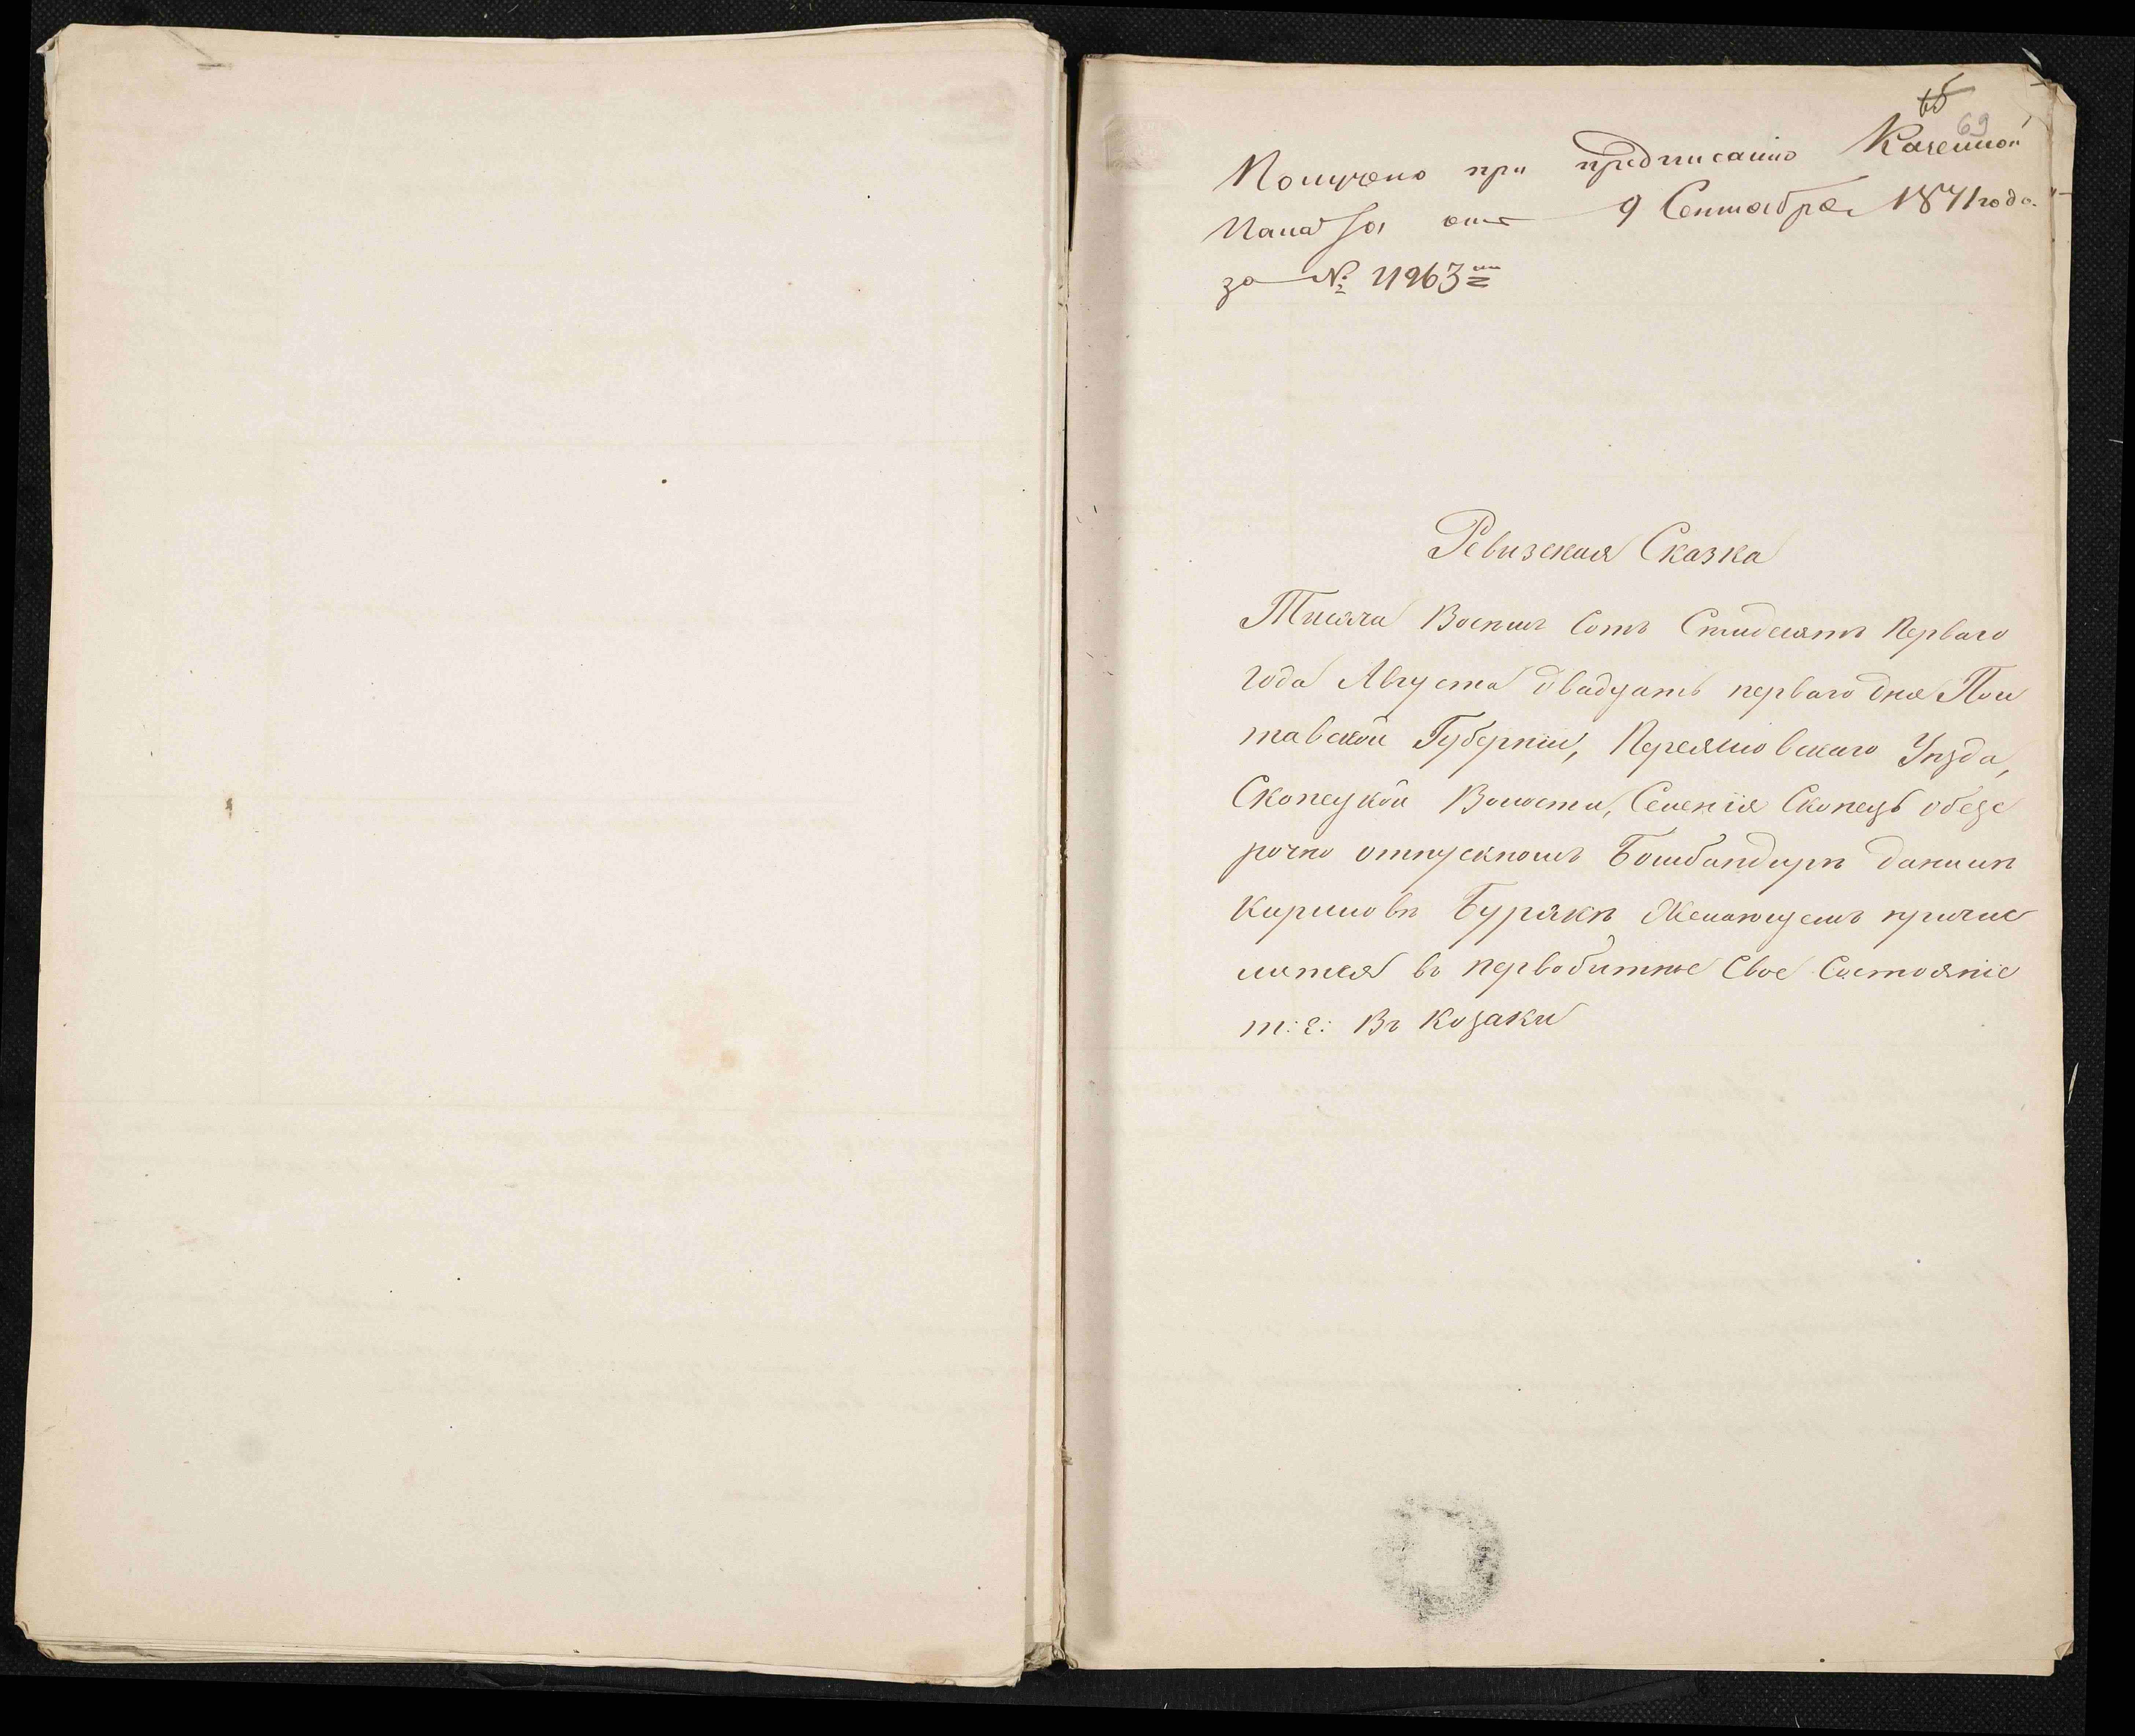 65
69
Получено при предписаніи Казенной
Палаты отъ 9 Сентября 1871 года
за № 11963
Ревизская Сказка
Тисяча Восемъ Сотъ Симдесятъ Перваго
года Августа двадцать перваго дня Пол
тавской Губерніи, Переяловскаго Уѣзда,
Скопецкой Волости, Селенія Скопецъ объ безс
рочно отпускномъ Бомбандирѣ Данилѣ
Кириловѣ Бурякѣ Желающемъ причис
лится въ первобитное Свое Состояніе
т: е: Въ Козаки